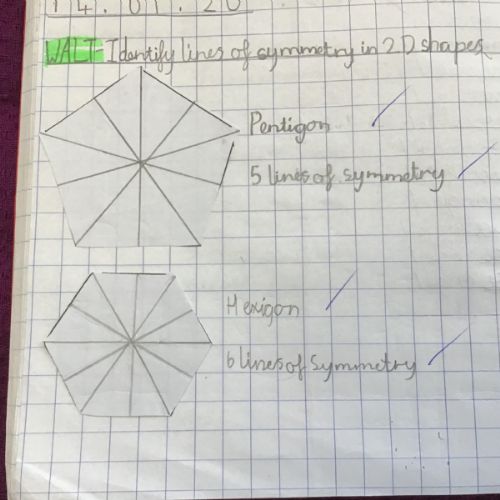 14.01.20
WALT: Identify lines of symmetry in 2D shapes.
Pentigon
5 lines of symmetry
Hexigon
6 lines of symmetry